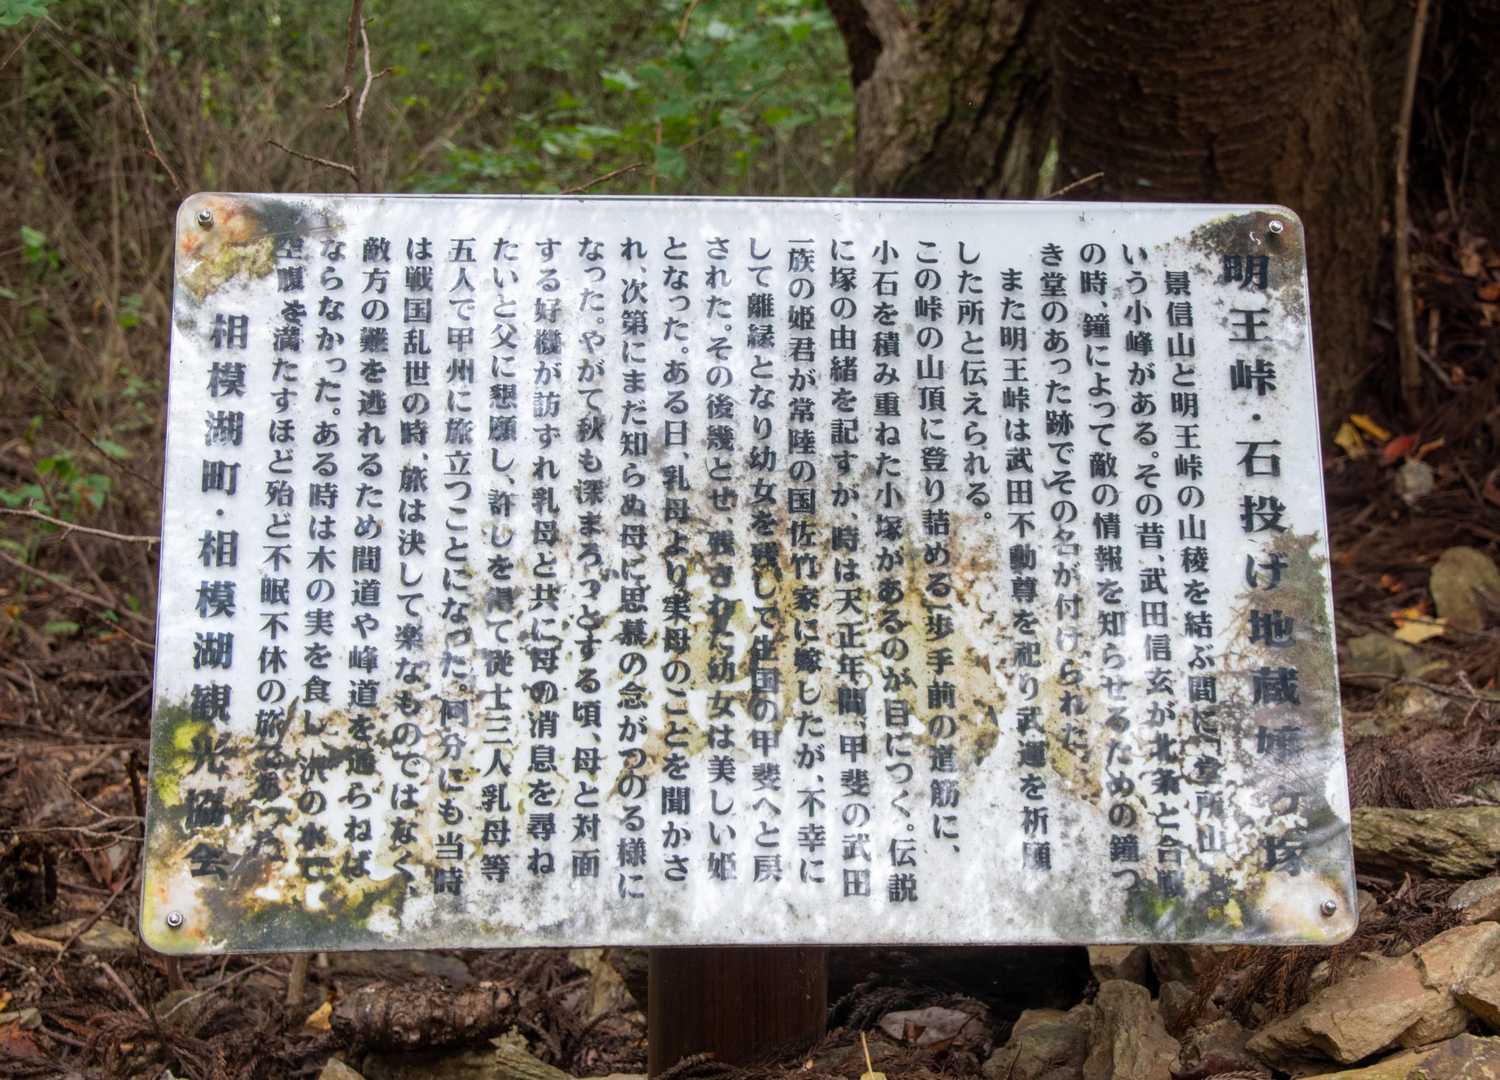 明王峠・石投げ地蔵嬢ヶ塚
景信山と明王峠の山稜を結ぶ間に、堂所山と
いう小峰がある。その昔、武田信玄が北条と合戦
の時、鐘によって敵の情報を知らせるための鐘つ
き堂のあった跡でその名が付けられた。
また明王峠は武田不動尊を祀り武運を祈願
した所と伝えられる。
この峠の山頂に登り詰める一歩手前の道筋に、
小石を積み重ねた小塚があるのが目につく。伝説
に塚の由緒を記すが、時は天正年間、甲斐の武田
一族の姫君が常陸の国佐竹家に嫁したが、不幸に
して離縁となり幼女を残して生国の甲斐へと戻
された。その後幾とせ、残された幼女は美しい姫
となった。ある日、乳母より実母のことを聞かさ
れ、次第にまだ知らぬ母に思慕の念がつのる様に
なった。やがて秋も深まろっとする頃、母と対面
する好機が訪ずれ乳母と共に母の消息を尋ね
たいと父に懇願し、許しを得て従士三人、乳母等
五人で甲州に旅立つことになった。何分にも当時
は戦国乱世の時、旅は決して楽なものではなく、
敵方の難を逃れるため間道や峰道を通らねば
ならなかった。ある時は木の実を食し、沢の水で
空腹を満たすほど殆ど不眠不休の旅であった
相模湖町・相模湖観光協会